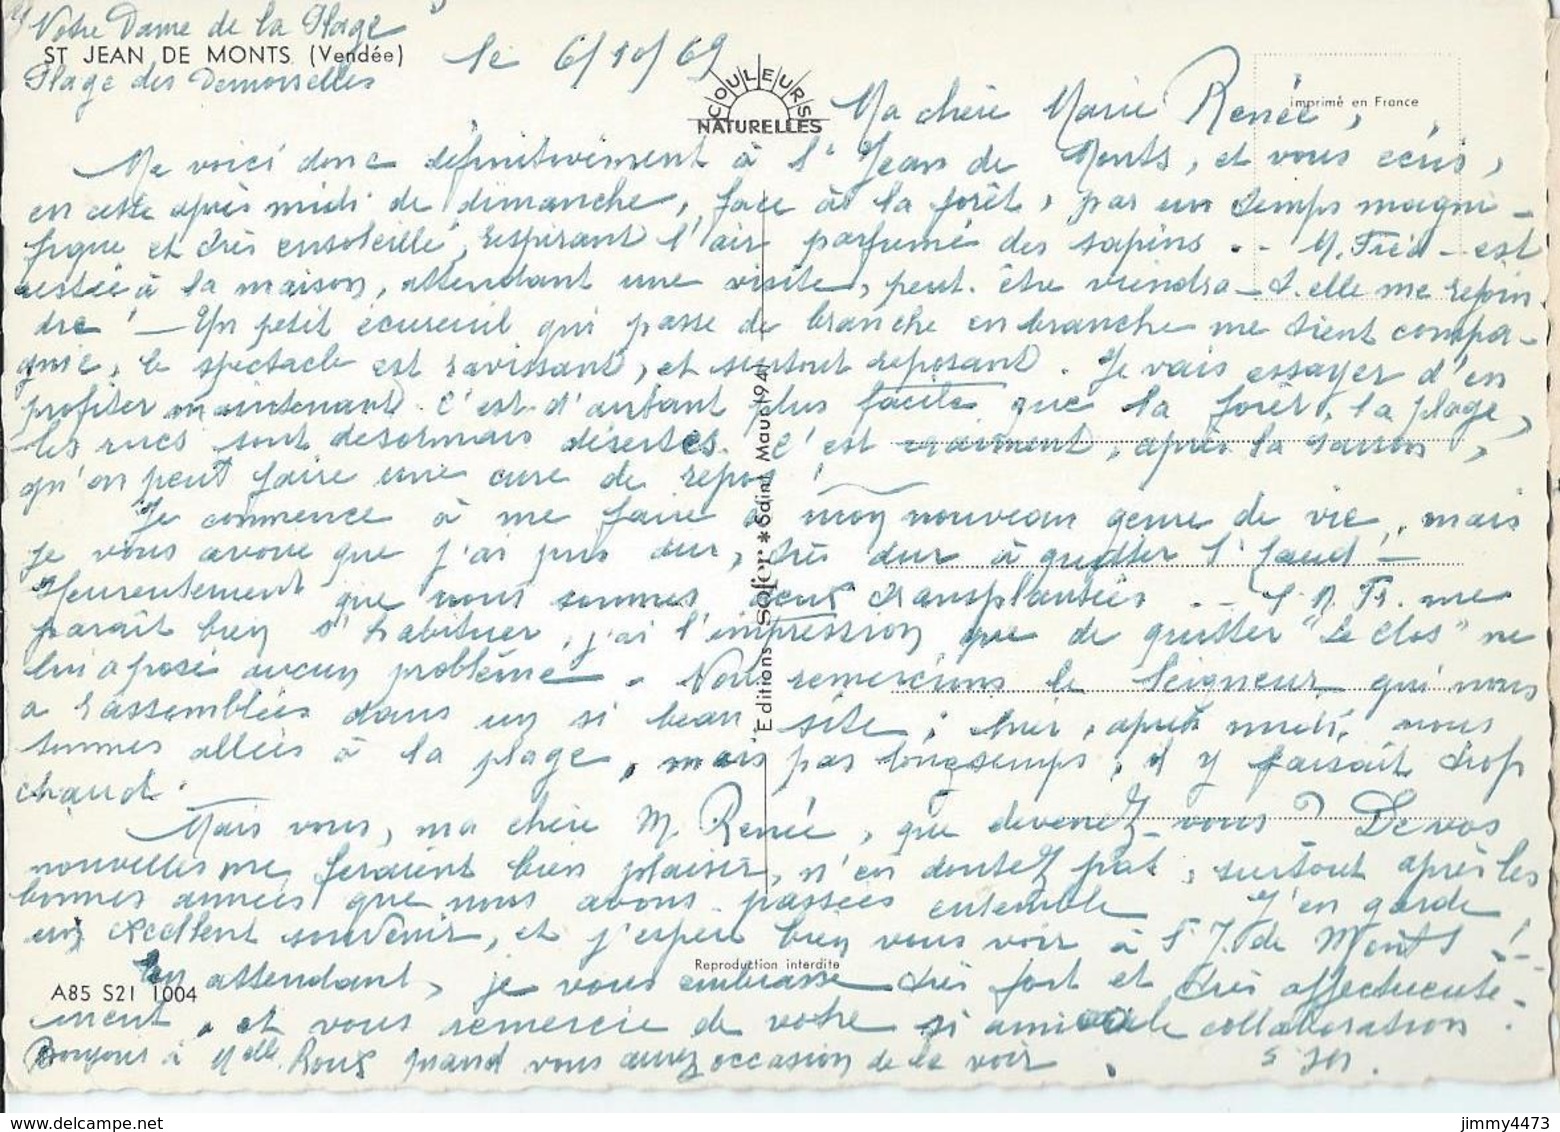 Notre Dame de la Plage
ST JEAN DE MONTS (Vendée)
Plage des Demoiselles
le 6/10/69
COULEURS
NATURELLES
imprimé en France
Ma chère Marie Renée,
Me voici donc définitivement à St Jean de Monts, et vous écris,
en cette après midi de dimanche, face à la forêt, par un temps magni-
fique et très ensoleillé, respirant l'air parfumé des sapins .. M. Fréd - est
restée à la maison, attendant une visite, peut-être viendra-t-elle me rejoin-
dre ! - Un petit écureuil qui passe de branche en branche me tient compa-
gnie, le spectacle est ravissant, et surtout reposant. Je vais essayer d'en
profiter maintenant. C'est d'autant plus facile que la forêt, la plage,
les rues sont désormais désertes. C'est vraiment, après la saison,
qu'on peut faire une cure de repos !
Je commence à me faire à mon nouveau genre de vie, mais
je vous avoue que j'ai pris dur, très dur à quitter l' -
Heureusement que nous sommes deux transplantées .. S. M. Fr. me
paraît bien s'habituer, j'ai l'impression que de quitter "Le Clos" ne
lui a posé aucun problème. Nous remercions le Seigneur qui nous
a rassemblées dans un si beau site; hier, après midi, nous
sommes allées à la plage, mais pas longtemps, il y faisait trop
chaud.
Mais vous, ma chère M. Renée, que devenez-vous? De vos
nouvelles me feraient bien plaisir, n'en doutez pas, surtout après les
bonnes années que nous avons passées ensemble J'en garde
un excellent souvenir, et j'espère bien vous voir à St J. de Monts !
En attendant, je vous embrasse très fort et très affectueuse-
ment, et vous remercie de votre si amicale collaboration.
Bonjour à Melle Roux quand vous aurez occasion de la voir.
Editions sofer * Saint Maur (94)
Reproduction interdite
A85 S21 1004
jimmy4473